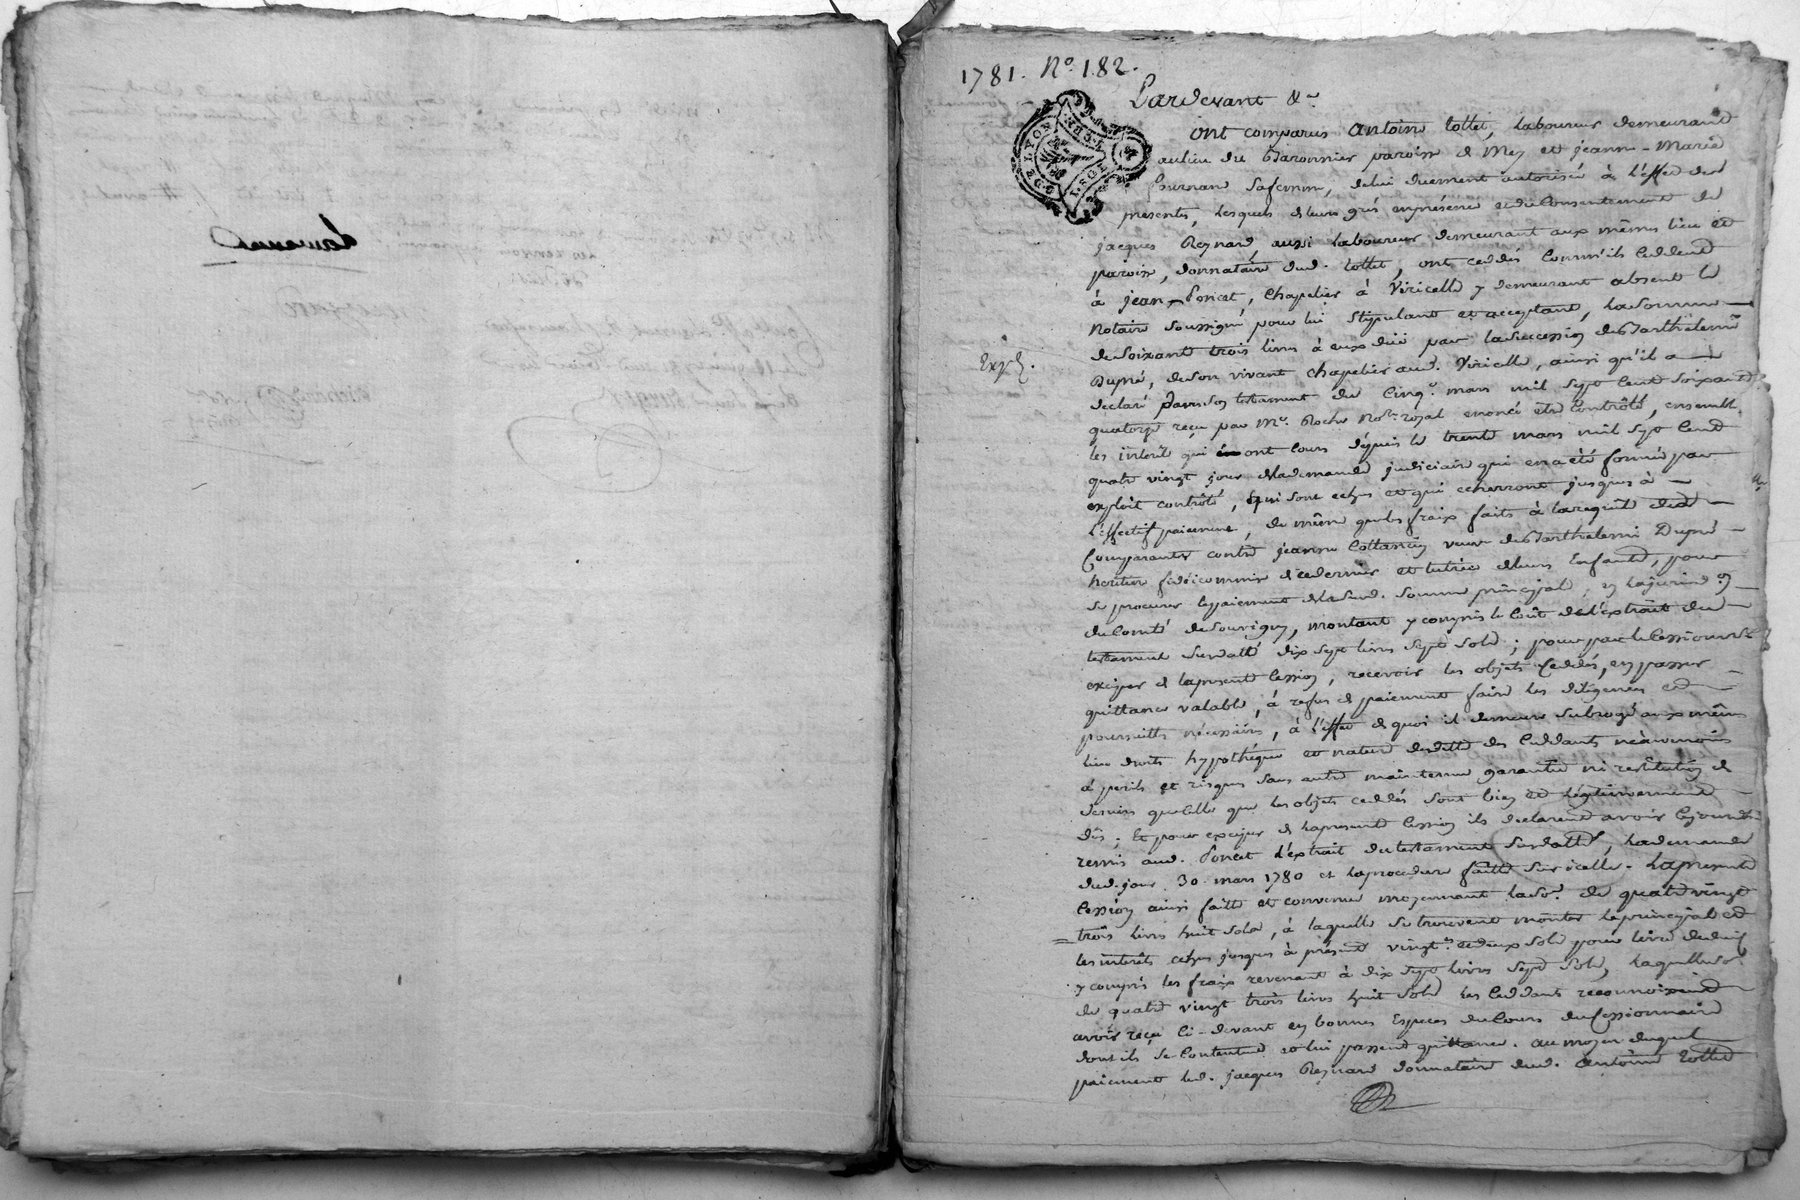 1781. No. 182.
Pardevant &a
GDE LYON
ont comparus Antoine Collet, Laboureur demeurant
au lieu du Baronnier paroisse de Meys et jeanne-Marie
sa femme, de lui duement autorisée à L'effet des
presentes, Lesquels de leurs grés en présence et du Consentement de
jacques Reynard, aussi Laboureur demeurant aux mêmes lieu et
paroisse, donnataire dud. Collet, ont ceddés comm'ils Ceddent
à jean Poncet, Chapelier à Viricelle y demeurant absent le
Notaire soussigné pour lui stipulant et acceptant, La somme
Expé.
de soixante trois livres à eux düe par la succession de Barthélemi
Dupré, de son vivant chapelier aud. Viricelle, ainsi qu'il a
declaré par son testament du cinq mars mil sept cent soixante
quatorze reçu par Me. Roche Nore. royal enoncé être Contrôlé, ensemble
les intérêts qui en ont cours depuis le trente mars mil sept Cent
quatre vingt jour de la demande judiciaire qui en a été formée par
exploit contrôlé, qui sont echus et qui echerront jusques à
L'effectif paiement, de même que les fraix faits à la requête desd.
Comparants contre jeanne veuve de Barthélemi Dupré
heritiere fidéicommise de ce dernier et tutrice de leurs Enfants, pour
se procurer le paiement de lad. somme principale, en la jurisd.on
du Comté de Souvigny, montant y compris le coût de l'extrait du
testament susdatté dix sept livres sept sols; pour par le Cessionnre
exciper de la presente Cession, recevoir les objets Ceddés, en passer
quittance valable, à refus de paiement faire les diligences et
poursuittes nécessaires, à l'effet de quoi il demeure subrogé aux mêmes
lieu droits hypothéque et nature de dette des Ceddants néanmoins
à perils et risques sans autre maintenue garantie ni restitution de
deniers que celle que les objets ceddés sont bien et légitimement
dûs; Et pour exciper de la presente Cession ils declarent avoir cejourd'hui
remis aud. Poncet L'extrait du testament susdatté, la demande
dud. jour 30. mars 1780 et la procedure faitte sur icelle. La presente
Cession ainsi faitte et convenue moyennant la so.e de quatre vingt
trois livres huit sols, à laquelle se trouvent monter le principal et
les intérêts echus jusques à présent vingt.e et deux sols pour livre deduits
y compris les fraix revenant à dix sept livres sept sols, Laquelle so.e
de quatre vingt trois livres huit sols les Ceddants reconnoissent
avoir reçu Ci-devant en bonnes Especes du Cours du Cessionnaire
dont ils se Contentent et lui passent quittance. au moyen duquel
paiement led. jacques Reynard donnataire dud. Antoine Collet